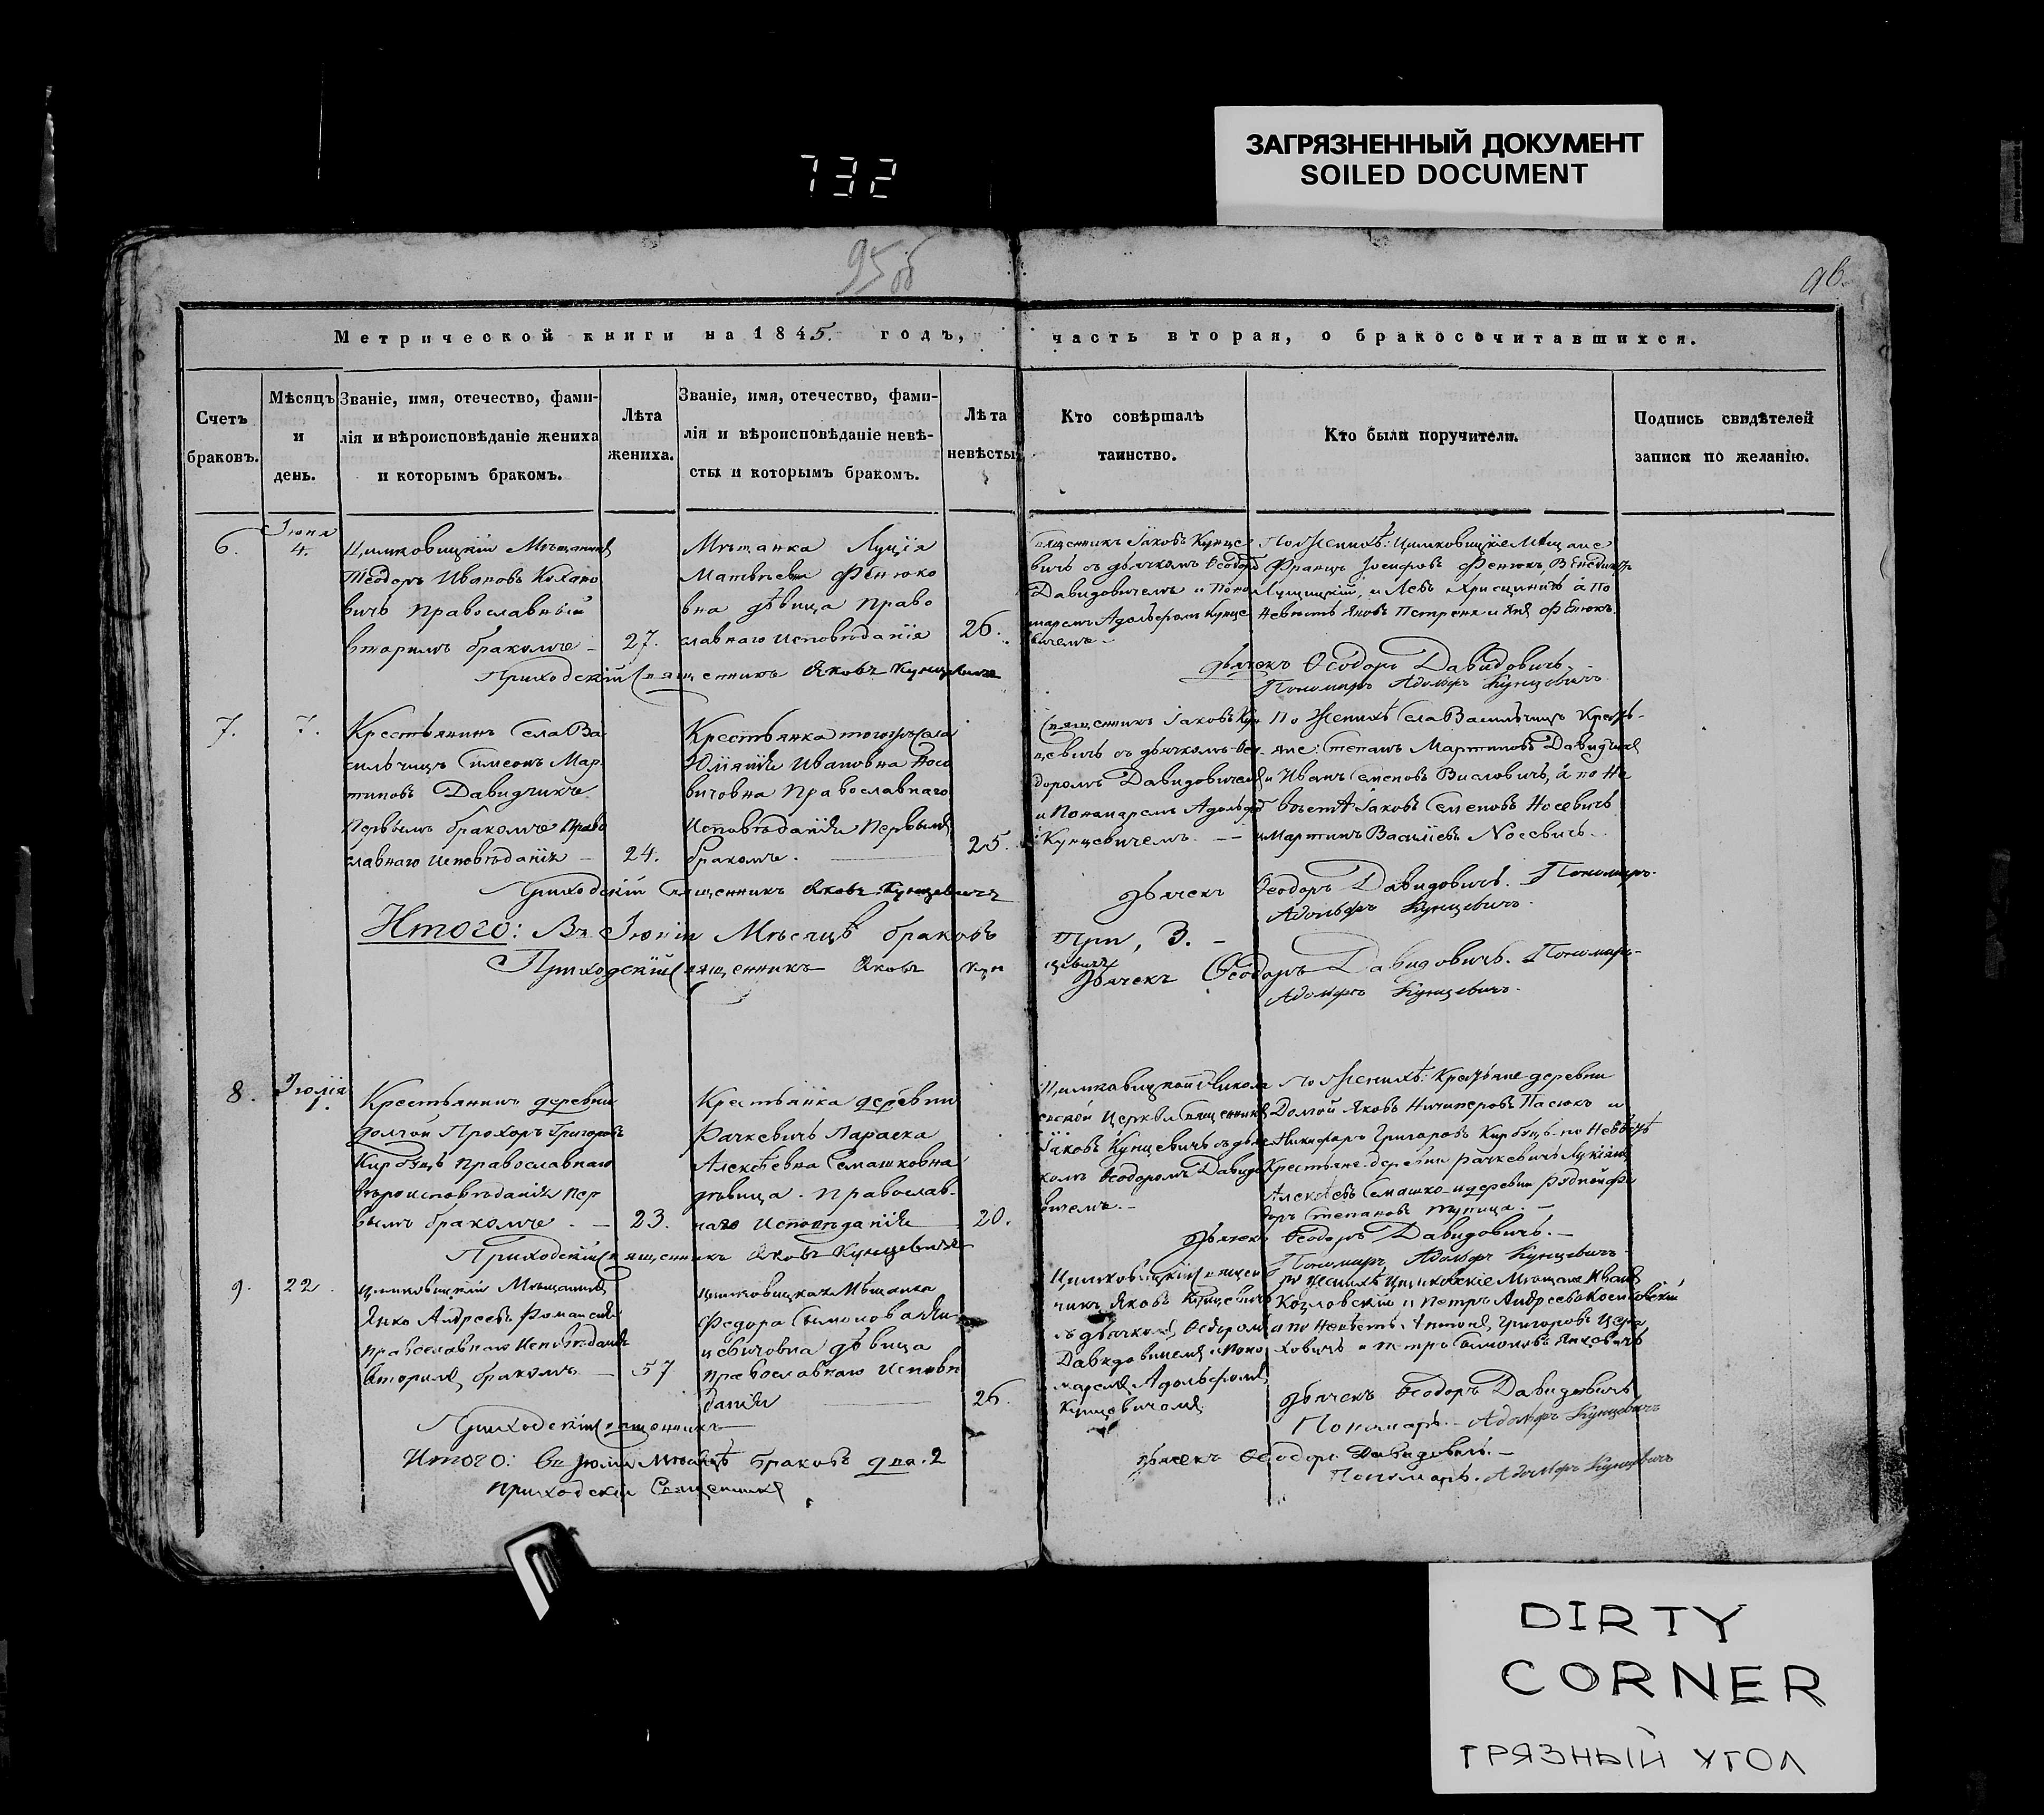 ЗАГРЯЗНЕННЫЙ ДОКУМЕНТ
SOILED DOCUMENT
732
95 об
96.
Метрической книги на 1845. годъ, часть вторая, о бракосочитавшихся.
Счетъ браковъ.
Мѣсяцъ и день.
Званіе, имя, отечество, фами-
лія и вѣроисповѣданіе жениха
и которымъ бракомъ.
Лѣта жениха.
Званіе, имя, отечество, фами-
лія и вѣроисповѣданіе невѣ-
сты и которымъ бракомъ.
Лѣта невѣсты
Кто совѣршалъ
таинство.
Кто были поручители.
Подпись свидѣтелей
записи по желанію.
6.
Іюня
4.
Цимковицкій Мѣщанинъ
Теодоръ Ивановъ Кохано
вичъ Православный
вторымъ бракомъ
27.
Мѣщанка Луція
Матвѣевна Фенюко
вна дѣвица Право
славнаго исповѣданія
26.
Священникъ Іаковъ Кунце
вичъ съ дьячкомъ Ѳеодоро
Давидовичемъ и Поно
маремъ Адольфомъ Кунце
вичемъ
По Женихѣ: Цимковицкіе Мѣщане
Францъ Іосифовъ Фенюкъ, Венедиктъ
и Левъ а По
Невѣстѣ Яковъ Петреня и Янъ Фенюкъ.
Приходскій Священникъ Яковъ Кунцевичъ
Дьячекъ Ѳеодоръ Давидовичъ.
Пономарь Адольфъ Кунцевичъ
7.
7.
Крестьянинъ Села Ва
сильчицъ Симеонъ Мар
тиновъ Давидчикъ
Первымъ бракомъ Право
славнаго исповѣданія
24.
Крестьянка тогожъ села
Юліянія Ивановна Носо
вичовна Православнаго
Исповѣданія Первымъ
бракомъ.
25.
Священникъ Іаковъ Кун
цевичъ съ дьячкомъ Ѳео
доромъ Давидовичемъ
и Пономаремъ Адольфо
Кунцевичемъ.
По Женихѣ Села Васильчицъ Кресть-
яне: Степанъ Мартиновъ Давидчикъ
и Иванъ Семеновъ Висловичъ, а по Не
вѣстѣ Іаковъ Семеновъ Носевичъ
и Мартинъ Василіевъ Носевичъ.
Приходскій Священникъ Яковъ Кунцевичъ
Дьячекъ Ѳеодоръ Давидовичъ. Пономарь
Адольфъ Кунцевичъ.
Итого: Въ Іюнѣ Мѣсяцѣ браковъ
Три, 3.
Приходскій Священникъ Яковъ Кун
цевичъ
Дьячекъ Ѳеодоръ Давидовичъ. Пономарь
Адольфъ Кунцевичъ.
8.
Іюлія
1.
Крестьянинъ деревни
Долгой Прохоръ Григоровъ
Кирбецъ Православнаго
вѣроисповѣданія Пер
вымъ бракомъ
23.
Крестьянка деревни
Рачкевичъ Параска
Алексѣевна Семашковна
дѣвица. Православ-
наго Исповѣданія
20.
Цимковицкой Никола
евской Церкви Священникъ
Іаковъ Кунцевичъ съ дьяч
комъ Ѳеодоромъ Давидо
вичемъ.
По Женихѣ: Крестьяне деревни
Долгой Яковъ Ничипоровъ Пасюкъ и
Никифоръ Григоровъ Кирбецъ по Невѣстѣ
Крестьяне деревни Рачкевичъ Лукіянъ
Алексѣевъ Семашко и деревни Рудной Фе
доръ Степановъ Тупица.
Приходскій Священникъ Яковъ Кунцевичъ
Дьячекъ Ѳеодоръ Давидовичъ.
Пономарь Адольфъ Кунцевичъ
9.
22.
Цимковицкій Мѣщанинъ
Янко Андреевъ
православнаго Исповѣданія
вторымъ бракомъ
57
Цимковицкая Мѣщанка
Федора Сымонова Ян
цевичовна дѣвица
православнаго Исповѣ
данія
26.
Цимковицкій Священ
никъ Яковъ Кунцевичъ
съ дьячкомъ Ѳеодоромъ
Давидовичемъ и Поно
маремъ Адольфомъ
Кунцевичомъ
По Женихѣ Цимковскіе Мѣщане Иванъ
Козловскій и Петръ Андреевъ
а по Невѣстѣ Антонъ Григоровъ
и Петръ Сымоновъ Янковичъ
Приходскій Священникъ
Дьячекъ Ѳеодоръ Давидовичъ
Пономарь. Адольфъ Кунцевичъ
Итого: въ Іюлѣ Мѣсяцѣ браковъ два. 2
Приходскій Священникъ
Дьячекъ Ѳеодоръ Давидовичъ.
Пономарь. Адольфъ Кунцевичъ
DIRTY
CORNER
ГРЯЗНЫЙ УГОЛ